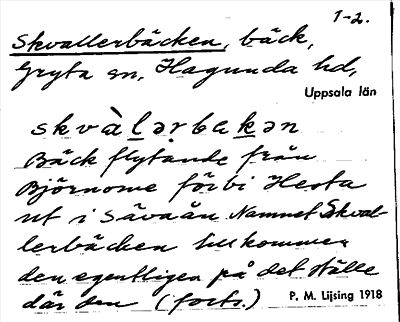 1-2.
Skvallerbäcken, bäck,
Gryta sn, Hagunda hd,
Uppsala län
skvàlərbekən
Bäck flytande från
Björnome förbi Hesta
ut i Sävaån. Namnet Skval-
lerbäcken tillkommer
den egentligen på det ställe
där den (forts.)
P. M. Lijsing 1918